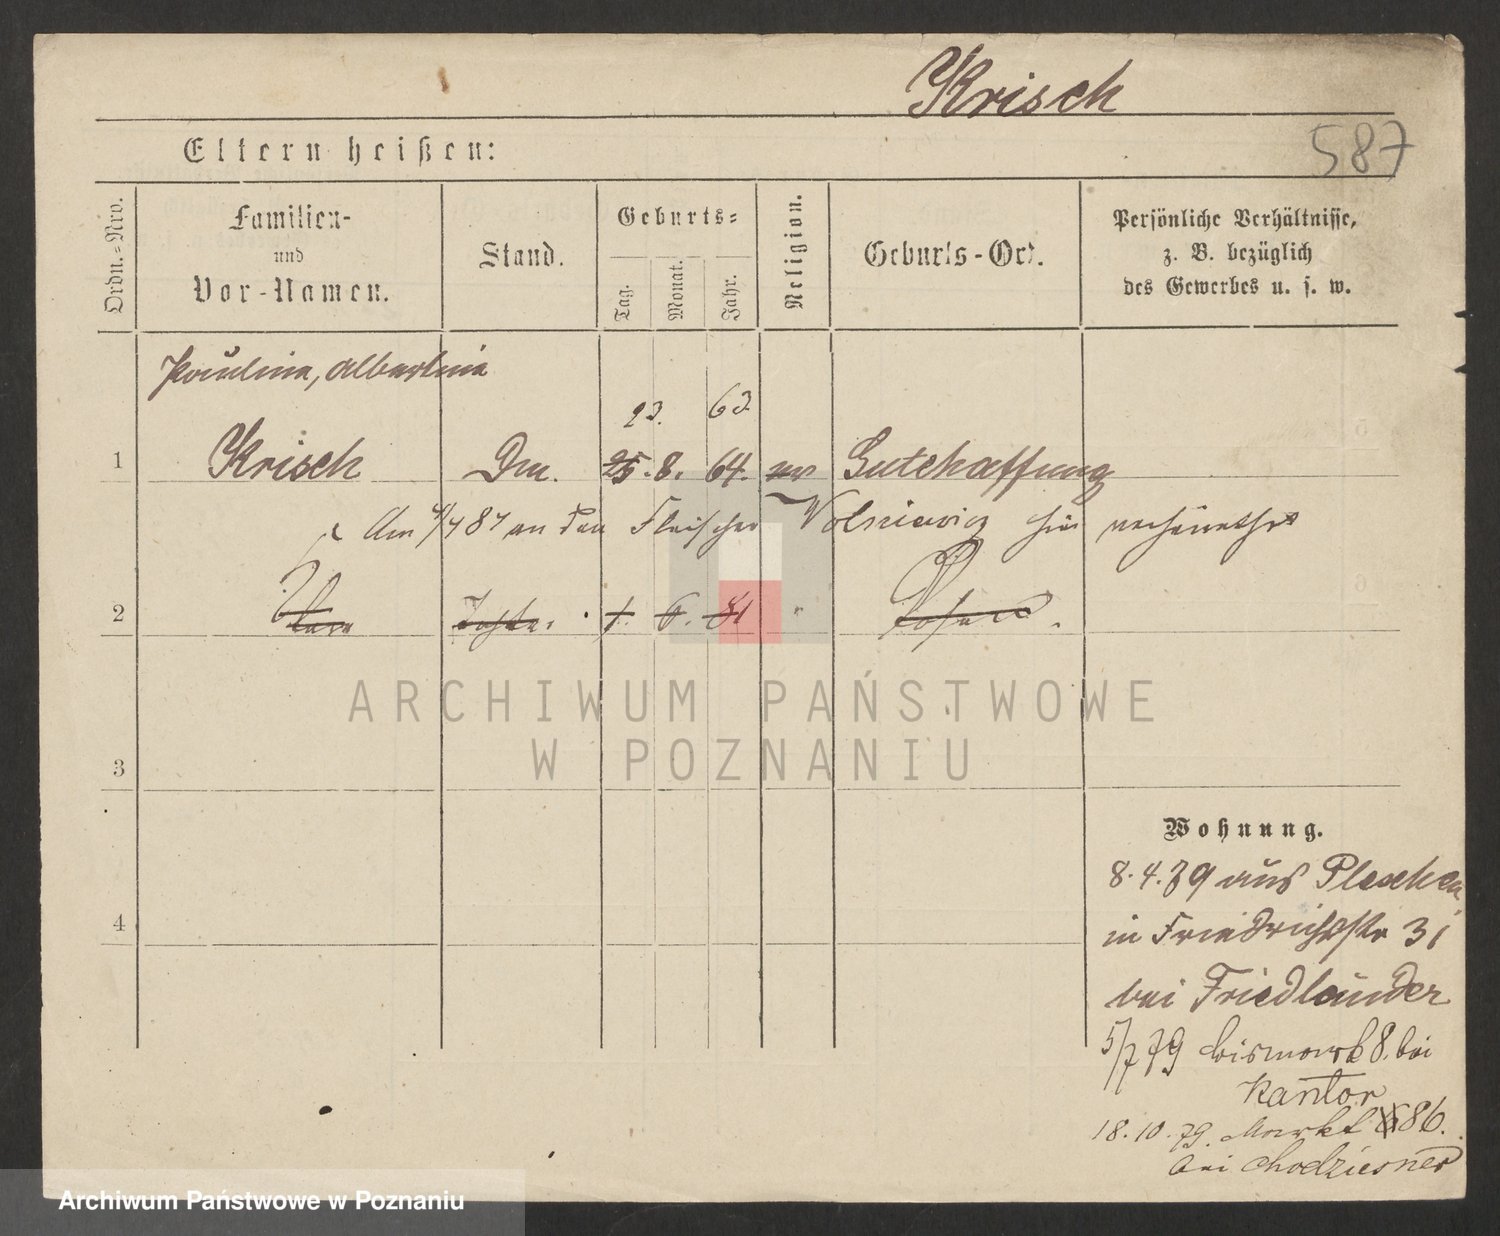 Krisch
587
Eltern heißen:
Ordn.-Nro.
Familien-
und
Vor-Namen.
Stand.
Geburts-
Tag.
Monat.
Jahr.
Religion.
Geburts-Ort.
Persönliche Verhältnisse,
z. B. bezüglich
des Gewerbes u. s. w.
Pauline, Albertine
23. 63.
1 Krisch Dm. 25. 8. 64. Gutehoffnung
Am 4/7 87 an den Fleischer Wolniewicz hier verheirathet
2 Tochter. 1. 6. 81 " Posen.
ARCHIWUM PAŃSTWOWE
W POZNANIU
3
Wohnung.
8.4.79 aus Pleschen
4
in Friedrichsstr 31
bei Friedländer
5/7 79 Bismark 8. bei
Kantor
18.10.79. Markt 86.
bei Chodziesner
Archiwum Państwowe w Poznaniu